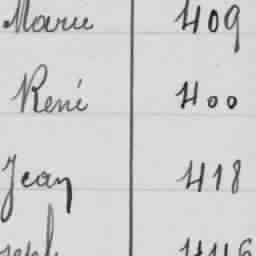 Marie 409
René 400
Jean 418